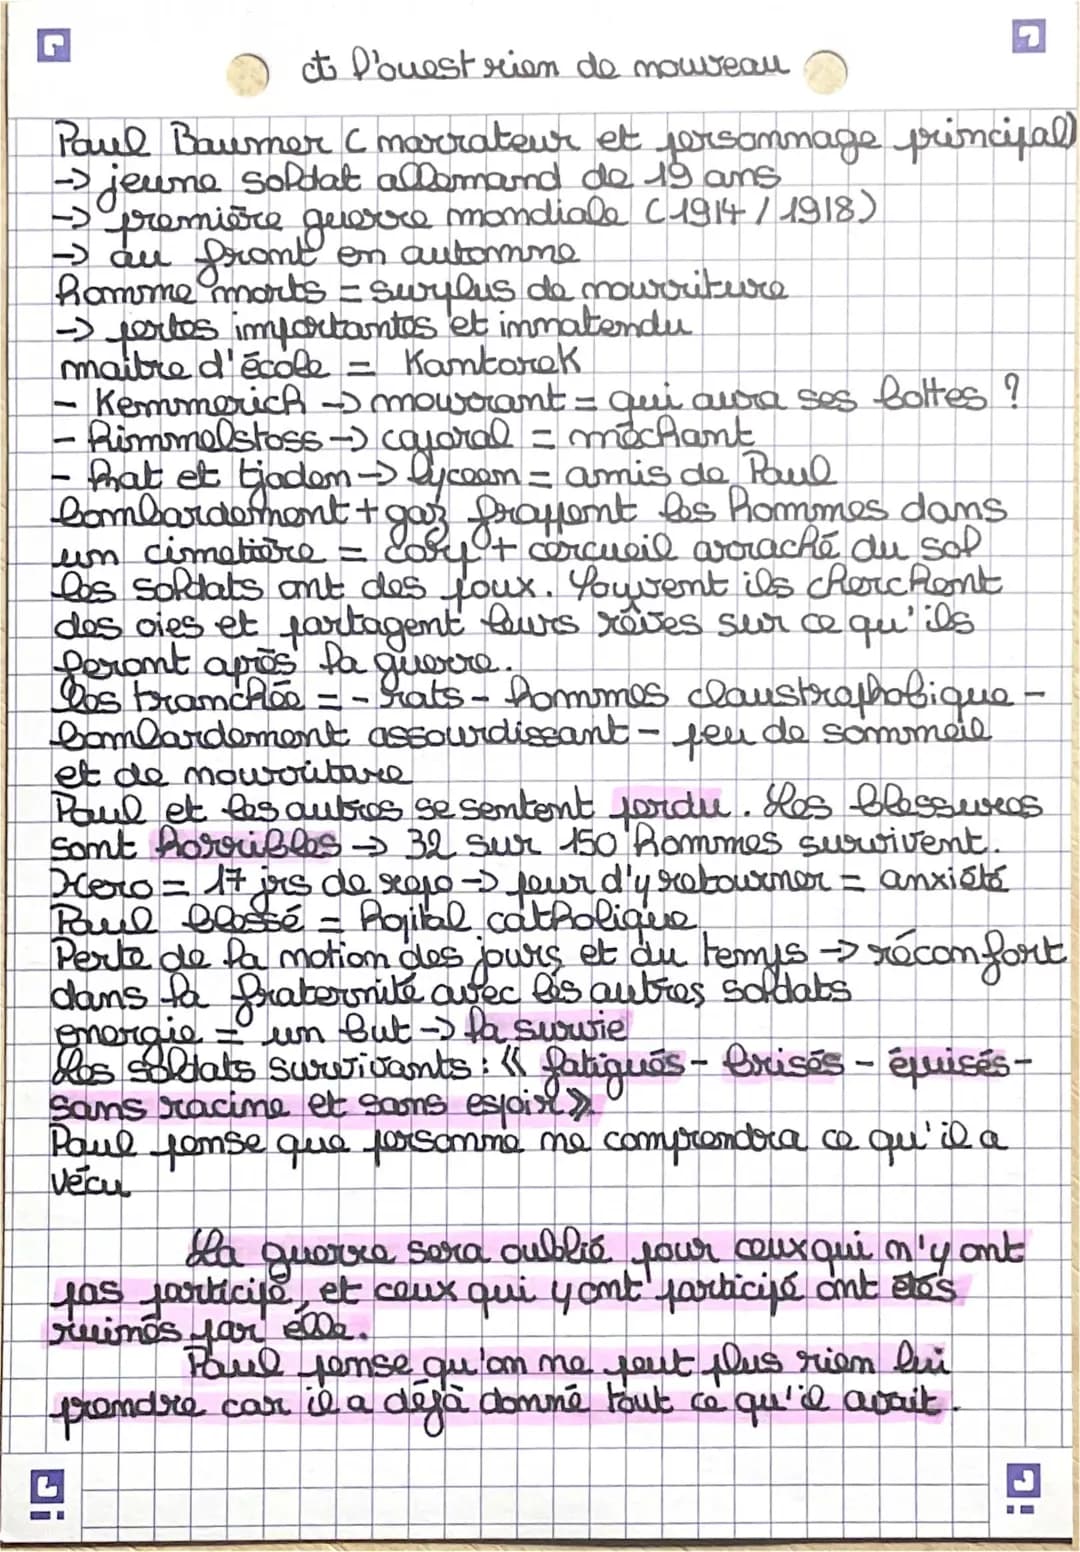 A l'ouest rien de nouveau
Paul Baumer (narrateur et personnage principal)
-> jeune soldat allemand de 19 ans
-> première guerre mondiale (1914 / 1918)
-> au front en automne
homme morts = surplus de nourriture
-> pertes importantes et innatendu
maitre d'école = Kantorek
- Kemmerich -> mourrant = qui aura ses bottes ?
- himmelstoss -> caporal = méchant
- hat et tjaden -> lyceen = amis de Paul
bombardement + gaz frappent les hommes dans
un cimetière = corp + cercueil arraché du sol
les soldats ont des poux. Souvent ils cherchent
des oies et partagent leurs rêves sur ce qu'ils
feront après la guerre.
les tranchée = - rats - hommes claustrophobique -
bombardement assourdissant - peu de sommeil
et de nourriture
Paul et les autres se sentent perdu. Les blessures
sont horribles -> 32 sur 150 hommes survivent.
Hero = 17 jrs de repo -> peur d'y retourner = anxiété
Paul blessé = hopital catholique
Perte de la notion des jours et du temps -> réconfort
dans la fraternité avec les autres soldats
energie = un but -> la survie
Les soldats survivants : « fatigués - brisés - épuisés -
sans racine et sans espoir »
Paul pense que personne ne comprendra ce qu'il a
vécu
La guerre sera oublié pour ceux qui n'y ont
pas participé, et ceux qui y ont participé ont étés
ruinés par elle.
Paul pense qu'on ne peut plus rien lui
prendre car il a déjà donné tout ce qu'il avait.